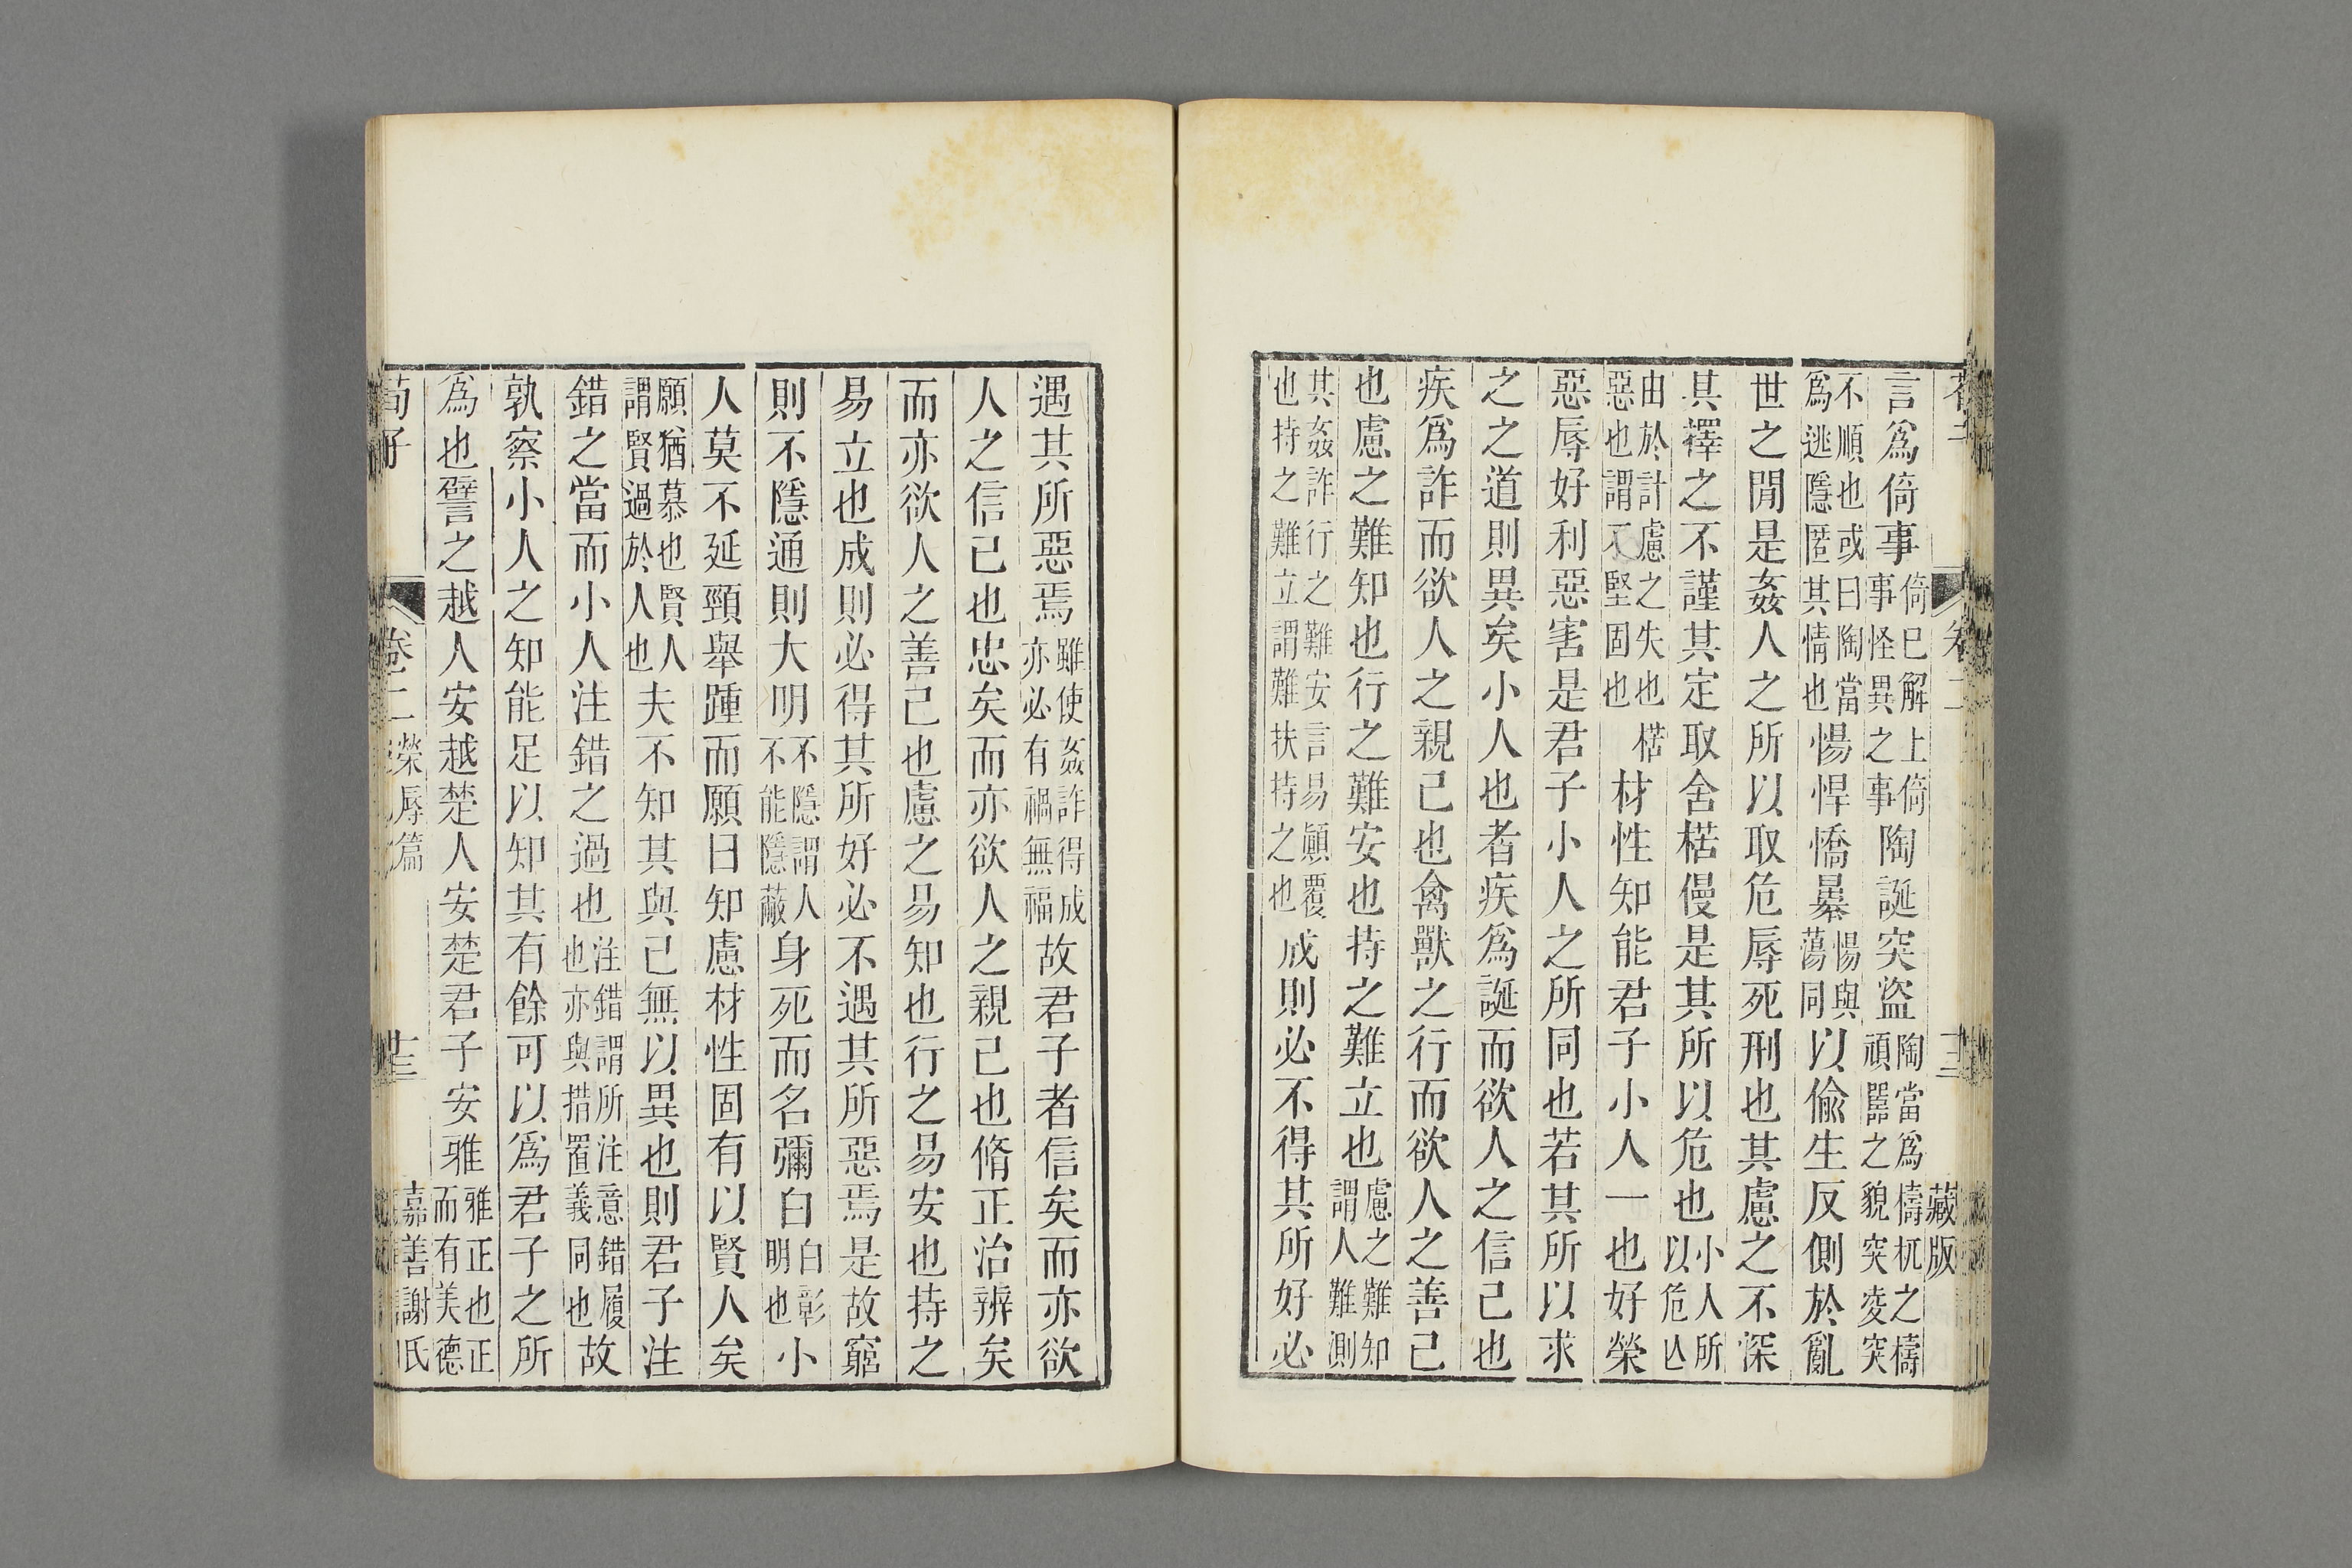 卷二 藏版
言爲倚事倚已解上倚事怪異之事陶誕突盜陶當爲檮杌之檮頑嚚之貌突凌突
不順也或曰陶當爲逃隱匿其情也愓悍憍暴愓與蕩同以偷生反側於亂
世之閒是姦人之所以取危辱死刑也其慮之不深
其擇之不謹其定取舍楛僈是其所以危也小人所以危亾
由於計慮之失也楛惡也謂不堅固也材性知能君子小人一也好榮
惡辱好利惡害是君子小人之所同也若其所以求
之之道則異矣小人也者疾爲誕而欲人之信己也
疾爲詐而欲人之親己也禽獸之行而欲人之善己
也慮之難知也行之難安也持之難立也慮之難知謂人難測
其姦詐行之難安言易顚覆也持之難立謂難扶持之也成則必不得其所好必
遇其所惡焉雖使姦詐得成亦必有禍無福故君子者信矣而亦欲
人之信己也忠矣而亦欲人之親己也脩正治辨矣
而亦欲人之善己也慮之易知也行之易安也持之
易立也成則必得其所好必不遇其所惡焉是故窮
則不隱通則大明不隱謂人不能隱蔽身死而名彌白白彰明也小
人莫不延頸舉踵而願曰知慮材性固有以賢人矣
願猶慕也賢人謂賢過於人也夫不知其與己無以異也則君子注
錯之當而小人注錯之過也注錯謂所注意錯履也亦與措置義同也故
孰察小人之知能足以知其有餘可以爲君子之所
爲也譬之越人安越楚人安楚君子安雅雅正也正而有美德
荀子 卷二 榮辱篇 嘉善謝氏